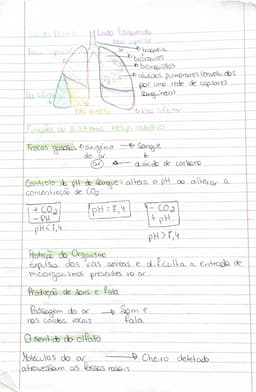 Lado Direito
Lado Esquerdo
lobo superior
→ traqueia
→ brônquios
→ bronquíolos
→ alvéolos pulmonares (envolvidos
por uma rede de capilares
sanguíneos)
lobo inferior
lobo médio
lobo inferior
Funções do sistema respiratório
Trocas gasosas: oxigênio → sangue
do ar
Ar ← dióxido de carbono
Controle do pH do sangue: altera o pH ao alterar a
concentração de CO₂
+ CO₂
- PH
pH < 7,4
pH = 7,4
- CO₂
+ pH
pH > 7,4
Proteção do Organismo
Expulsa das vias aéreas e dificulta a entrada de
microrganismos presentes no ar
Produção de Sons e Fala
Passagem do ar → Som e
nas cordas vocais fala
O sentido do olfato
Moléculas do ar → Cheiro detectado
atravessam as fossas nasais